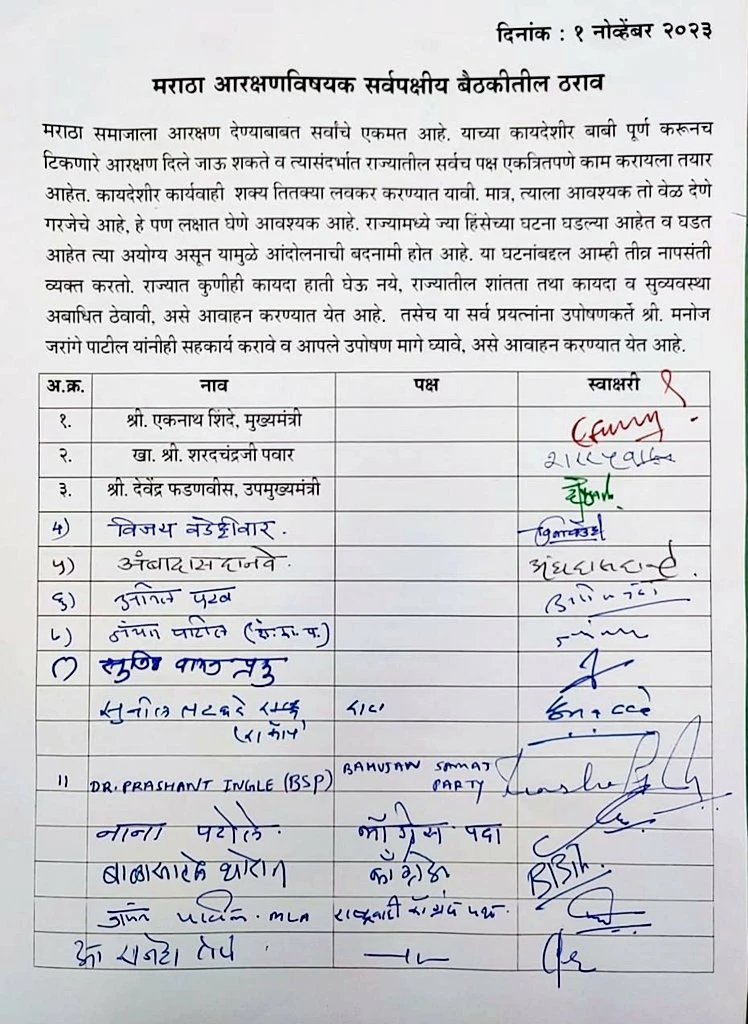 दिनांक : १ नोव्हेंबर २०२३
मराठा आरक्षणविषयक सर्वपक्षीय बैठकीतील ठराव
मराठा समाजाला आरक्षण देण्याबाबत सर्वांचे एकमत आहे. याच्या कायदेशीर बाबी पूर्ण करूनच
टिकणारे आरक्षण दिले जाऊ शकते व त्यासंदर्भात राज्यातील सर्वच पक्ष एकत्रितपणे काम करायला तयार
आहेत. कायदेशीर कार्यवाही शक्य तितक्या लवकर करण्यात यावी. मात्र, त्याला आवश्यक तो वेळ देणे
गरजेचे आहे, हे पण लक्षात घेणे आवश्यक आहे. राज्यामध्ये ज्या हिंसेच्या घटना घडल्या आहेत व घडत
आहेत त्या अयोग्य असून यामुळे आंदोलनाची बदनामी होत आहे. या घटनांबद्दल आम्ही तीव्र नापसंती
व्यक्त करतो. राज्यात कुणीही कायदा हाती घेऊ नये, राज्यातील शांतता तथा कायदा व सुव्यवस्था
अबाधित ठेवावी, असे आवाहन करण्यात येत आहे. तसेच या सर्व प्रयत्नांना उपोषणकर्ते श्री. मनोज
जरांगे पाटील यांनीही सहकार्य करावे व आपले उपोषण मागे घ्यावे, असे आवाहन करण्यात येत आहे.
अ.क्र. नाव पक्ष स्वाक्षरी
१. श्री. एकनाथ शिंदे, मुख्यमंत्री
२. खा. श्री. शरदचंद्रजी पवार
३. श्री. देवेंद्र फडणवीस, उपमुख्यमंत्री
४) विजय वडेट्टीवार.
५) अंबादास दानवे.
६) अनिल परब
७) जयंत पाटील (शे.का.प.)
सुनील तटकरे
11 DR. PRASHANT INGLE (BSP) BAHUJAN SAMAJ PARTY
नाना पटोले. काँग्रेस पक्ष
बाळासाहेब थोरात काँग्रेस
जयंत पाटील. MLA राष्ट्रवादी काँग्रेस पक्ष.